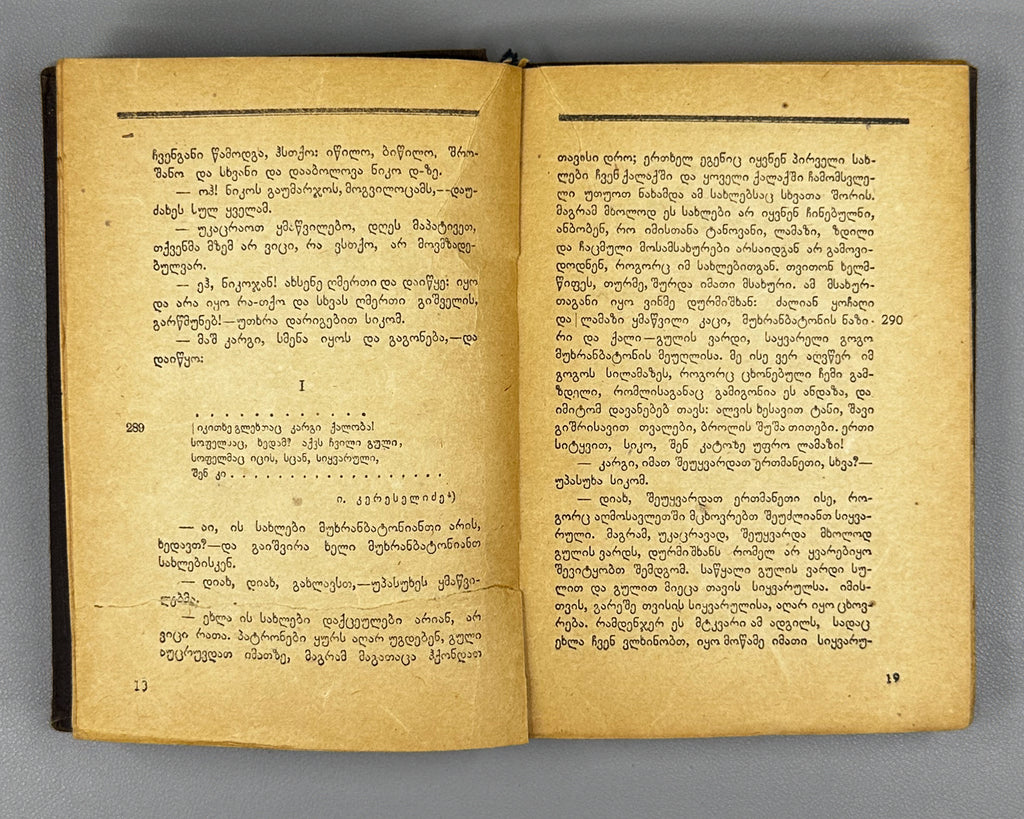 ჩვენგანი წამოდგა, ჰსთქო: იწილო, ბიწილო, შრო-
შანო და სხვანი და დააბოლოვა ნიკო დ-ზე.
— ოჰ! ნიკოს გაუმარჯოს, მოგვილოცამს,—დაუ-
ძახეს სულ ყველამ.
— უკაცრაოთ ყმაწვილებო, დღეს მაპატივეთ,
თქვენმა მზემ არ ვიცი, რა ვსთქო, არ მოვმზადე-
ბულვარ.
— ეჰ, ნიკოჯან! ახსენე ღმერთი და დაიწყე: იყო
და არა იყო რა-თქო და სხვას ღმერთი გიშველის,
გარწმუნებ!—უთხრა დარიგებით სიკომ.
— მაშ კარგი, სმენა იყოს და გაგონება,—და
დაიწყო:
I
. . . . . . . . . . . .
289 |იკითხე გლეხთაც კარგი ქალობა!
სოფელსაც, ხედამ? აქვს ჩვილი გული,
სოფელმაც იცის, სცან, სიყვარული,
შენ კი . . . . . . . . . . . . . . . . .
ი. კერესელიძე⁴)
— აი, ის სახლები მუხრანბატონიანთი არის,
ხედავთ?—და გაიშვირა ხელი მუხრანბატონიანთ
სახლებისკენ.
— დიახ, დიახ, გახლავსთ,—უპასუხეს ყმაწვი-
ლებმა.
— ეხლა ის სახლები დაქცეულები არიან, არ
ვიცი რათა. პატრონები ყურს აღარ უგდებენ, გული
აუცრუვდათ იმათზე, მაგრამ მაგათაცა ჰქონდათ
13
თავისი დრო; ერთხელ ეგენიც იყვნენ პირველი სახ-
ლები ჩვენ ქალაქში და ყოველი ქალაქში ჩამომსვლე-
ლი უთუოთ ნახამდა ამ სახლებსაც სხვათა შორის.
მაგრამ მხოლოდ ეს სახლები არ იყვნენ ჩინებულნი,
ანბობენ, რო იმისთანა ტანოვანი, ლამაზი, ზდილი
და ჩაცმული მოსამსახურები არსაიდგან არ გამოვი-
დოდნენ, როგორც იმ სახლებითგან. თვითონ ხელმ-
წიფეს, თურმე, შურდა იმათი მსახური. ამ მსახურ-
თაგანი იყო ვინმე დურმიშხან: ძალიან ყოჩაღი
და|ლამაზი ყმაწვილი კაცი, მუხრანბატონის ნაზი- 290
რი და ქალი—გულის ვარდი, საყვარელი გოგო
მუხრანბატონის მეუღლისა. მე ისე ვერ აღვწერ იმ
გოგოს სილამაზეს, როგორც ცხონებული ჩემი გამ-
ზდელი, რომლისაგანაც გამიგონია ეს ანდაზა, და
იმიტომ დავანებებ თავს: ალვის ხესავით ტანი, შავი
გიშრისავით თვალები, ბროლის შუშა თითები. ერთი
სიტყვით, სიკო, შენ კატოზე უფრო ლამაზი!
— კარგი, იმათ შეუყვარდათ ერთმანეთი, სხვა?—
უპასუხა სიკომ.
— დიახ, შეუყვარდათ ერთმანეთი ისე, რო-
გორც აღმოსავლეთში მცხოვრებთ შეუძლიანთ სიყვა-
რული. მაგრამ, უკაცრავად, შეუყვარდა მხოლოდ
გულის ვარდს, დურმიშხანს რომელ არ ყვარებიყო
შევიტყობთ შემდგომ. საწყალი გულის ვარდი სუ-
ლით და გულით მიეცა თავის სიყვარულსა. იმის-
თვის, გარეშე თვისის სიყვარულისა, აღარ იყო ცხოვ-
რება. რამდენჯერ ეს მტკვარი ამ ადგილს, სადაც
ეხლა ჩვენ ვლხინობთ, იყო მოწამე იმათი სიყვარუ-
19